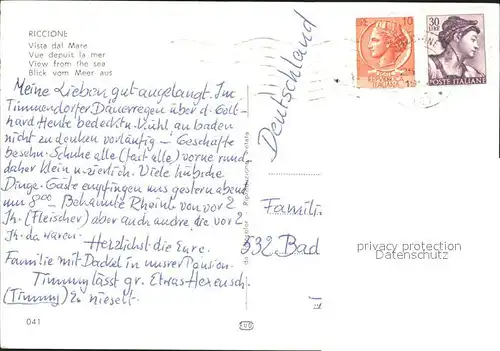 RICCIONE
Vista dal Mare
Vue depuis la mer
View from the sea
Blick vom Meer aus
Meine Lieben gut angelangt. Im
Timmendorfer Dauerregen über d. Gott-
hard Heute bedeckt u. kühl an baden
nicht zu denken vorläufig – Geschäfte
besehn. Schuhe alle (fast alle) vorne rund
daher klein u. zierlich. Viele hübsche
Dinge. Gäste empfingen uns gestern abend
um 8 00 – Bekannte Rheinl. von vor 2
Jh. (Fleischer) aber auch andre die vor 2
Jh. da waren. Herzlichst die Eure.
Familie mit Dackel in unsrer Pension.
Timmy lässt gr. Etwas
(Timmy) Es nieselt.
041
Deutschland
10
REPUBBLICA
ITALIANA
30
LIRE
POSTE ITALIANE
Famili
532 Bad
privacy protection
Datenschutz